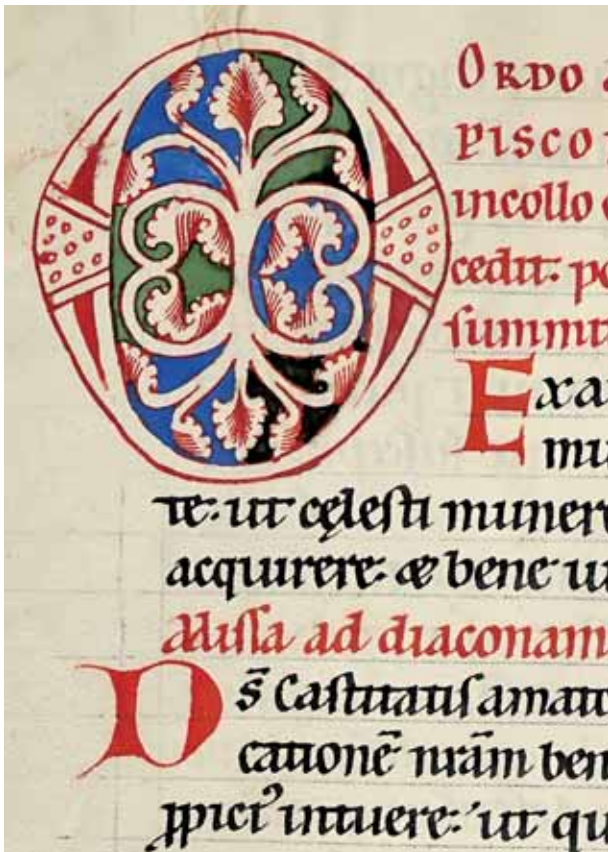 ORDO
PISCO
incollo
cedit. p
summ
Exa
mu
te. ut cęlesti muner
acquirere. & bene u
Missa ad diaconam
Ds̄ castitatis amato
catione᷒ nr̄am ben
ꝓpict᷒ intuere. ut qu